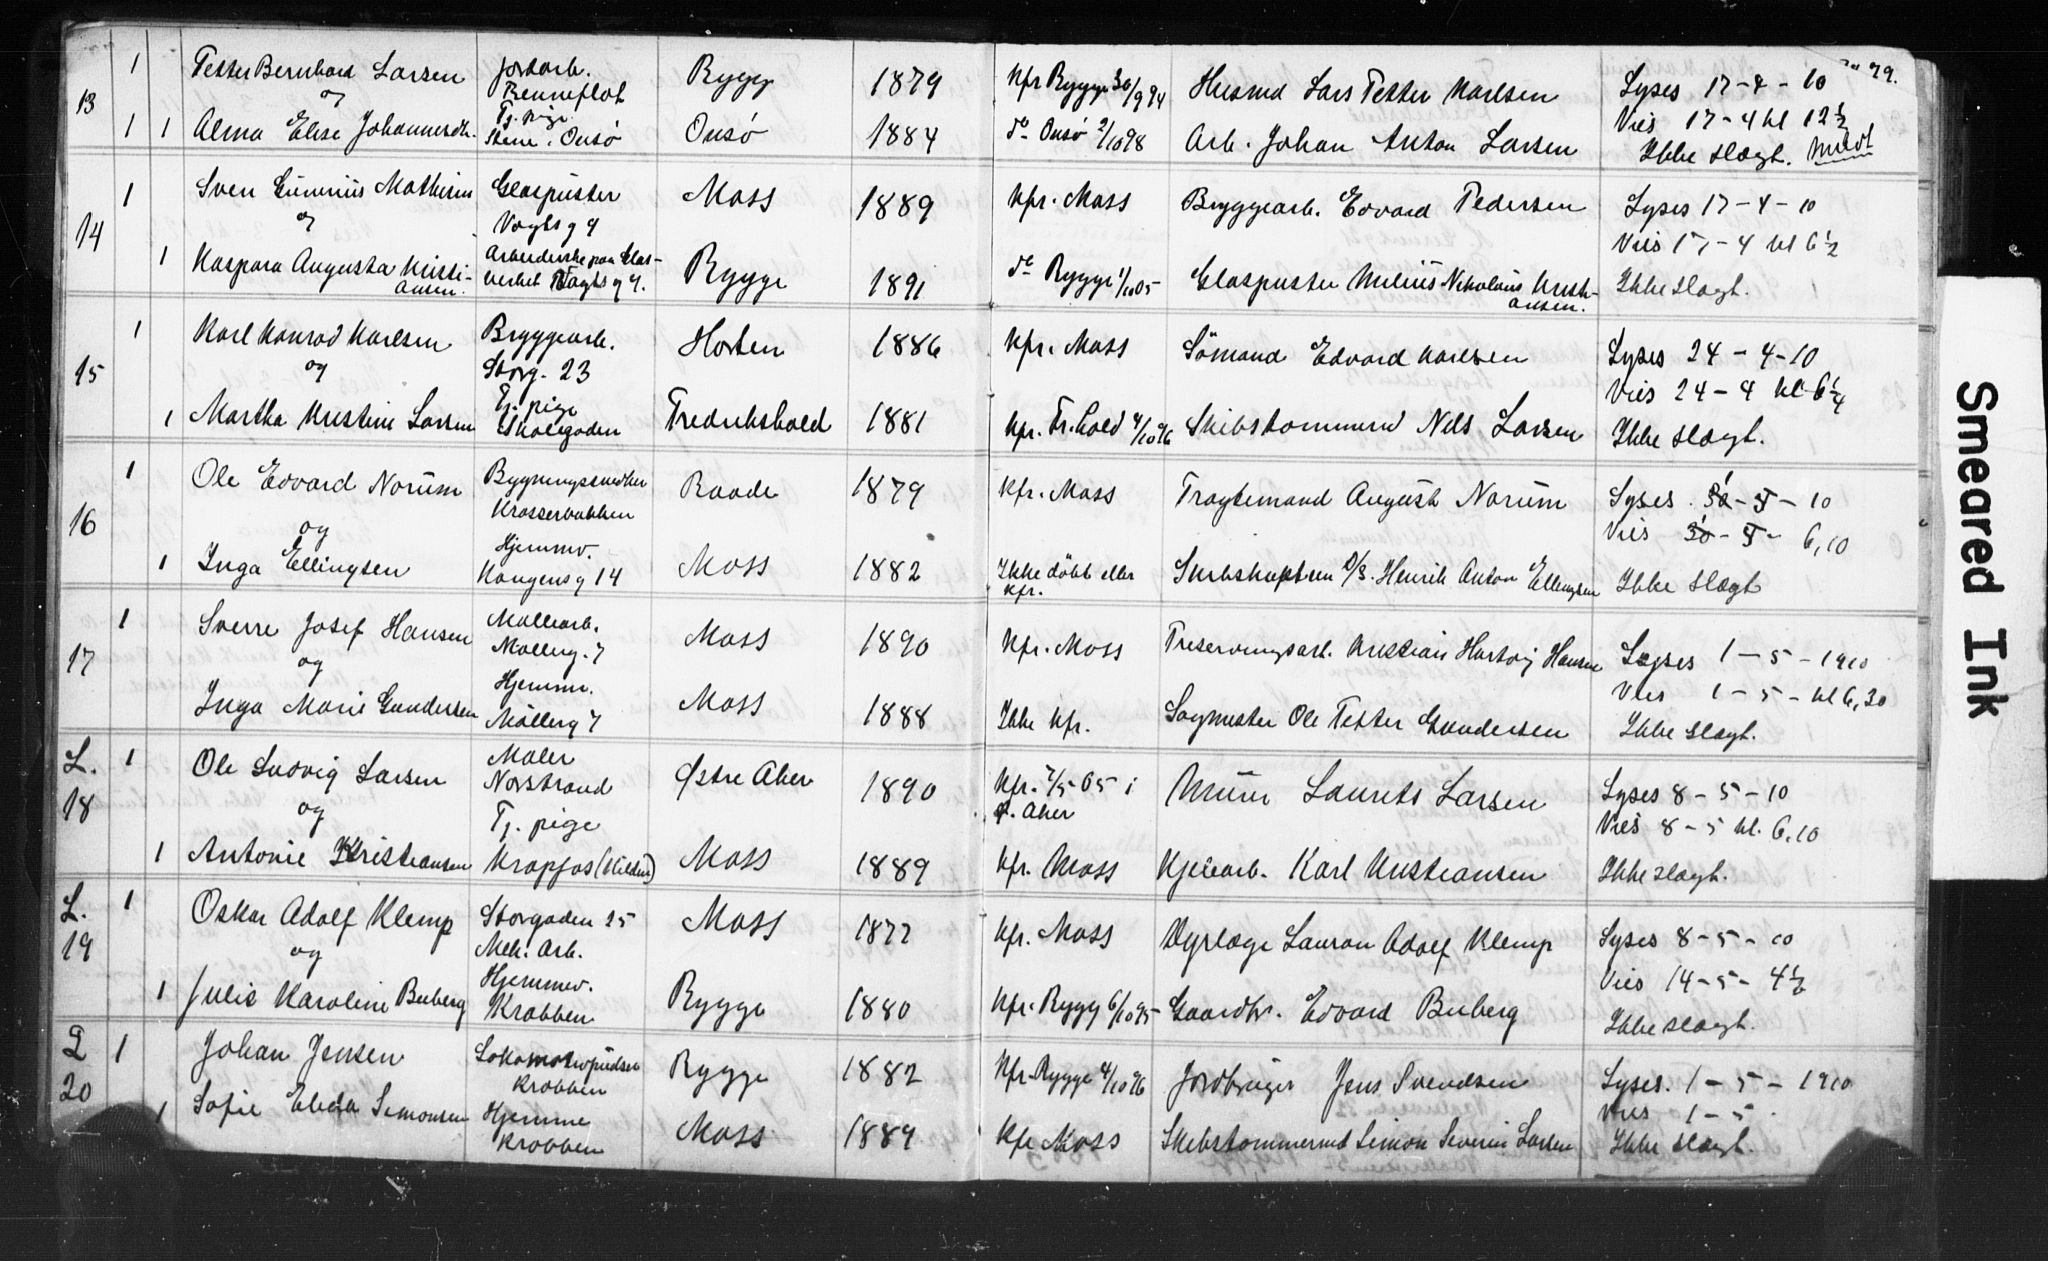 79.
13 1 Petter Bernhard Larsen Jordarb. Rygge 1879 Kfr Rygge 30/9 94 Husmd Lars Petter Karlsen Lyses 17-4-10
og Vies 17-4 kl 12½
1 1 Alma Elise Johannesdtr. Tj. pige Onsö 1884 do Onsö 2/10 98 Arb. Johan Anton Larsen Ikke slægt. Meldt
14 1 Sven Gunerius Mathisen Glaspuster Moss 1889 Kfr. Moss Bryggearb. Edvard Pedersen Lyses 17-4-10
og Vogtsg 4 Vies 17-4 kl 6½
1 Kaspara Augusta Kristi- Arbeiderske paa Glas-
ansen. verket Vogtsg 4. Rygge 1891 do Rygge 1/10 05 Glaspuster Milius Nikolaus Kristi-
ansen. Ikke slægt.
15 1 Karl Konrad Karlsen Bryggearb. Horten 1886 Kfr. Moss Sömand Edvard Karlsen Lyses 24-4-10
og Storg. 23 Vies 24-4 kl 6¼
1 Martha Kristine Larsen Tj. pige
Skolegaden Fredrikshald 1881 Kfr. Fr.hald 4/10 96 Skibstømmermd Nils Larsen Ikke slægt.
16 1 Ole Edvard Norum Bygningssnedker Raade 1879 Kfr. Moss Fragtemand August Norum Lyses 1-5-10
Krosserbakken
og Vies 1-5- 6,10
1 Inga Ellingsen Hjemmev.
Kongensg 14 Moss 1882 Ikke döbt eller
kfr. Skibskaptein D/S. Henrik Anton Ellingsen Ikke slægt
17 1 Sverre Josef Hansen Møllearb.
Mølleg. 7 Moss 1890 Kfr. Moss Preserveringsarb. Kristian Hartvig Hansen Lyses 1-5-1910
og Vies 1-5-kl 6,30
Inga Marie Gundersen Hjemmv.
Mölleg 7 Moss 1888 Ikke kfr. Sagmester Ole Petter Gundersen Ikke slægt.
L. 18 1 Ole Ludvig Larsen Maler
Norstrand Østre Aker 1890 Kfr. 7/5 05 i
Ø. Aker Murer Laurits Larsen Lyses 8-5-10
og Vies 8-5 kl. 6,10
1 Antonie Kristiansen Tj. pige
Krapfos (Kilden) Moss 1889 Kfr. Moss Kjelearb. Karl Kristiansen Ikke slægt.
L. 19 1 Oskar Adolf Klemp Storgaden 25
Mek. Arb. Moss 1877 Kfr. Moss Dyrlæge Lauran Adolf Klemp Lyses 8-5-10
og Vies 14-5-4½
1 Julie Karoline Buberg Hjemmev.
Krabben Rygge 1880 Kfr. Rygg 6/10 95 Gaardbr. Edvard Buberg Ikke slægt.
L 20 1 Johan Jensen Lokomotivpudser
Krabben Rygge 1882 Kfr. Rygge 4/10 96 Jordbruger Jens Svendsen Lyses. 1-5-1910
Vies 1-5
1 Sofie Elida Simonsen Hjemme
Krabben Moss 1889 Kfr Moss Skibstømmermd Simon Severin Larsen Ikke slægt.
Smeared Ink